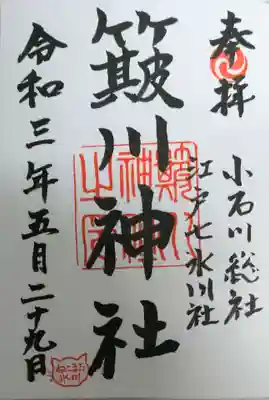 奉拝
小石川総社
江戸七氷川社
簸川神社
令和三年五月二十九日